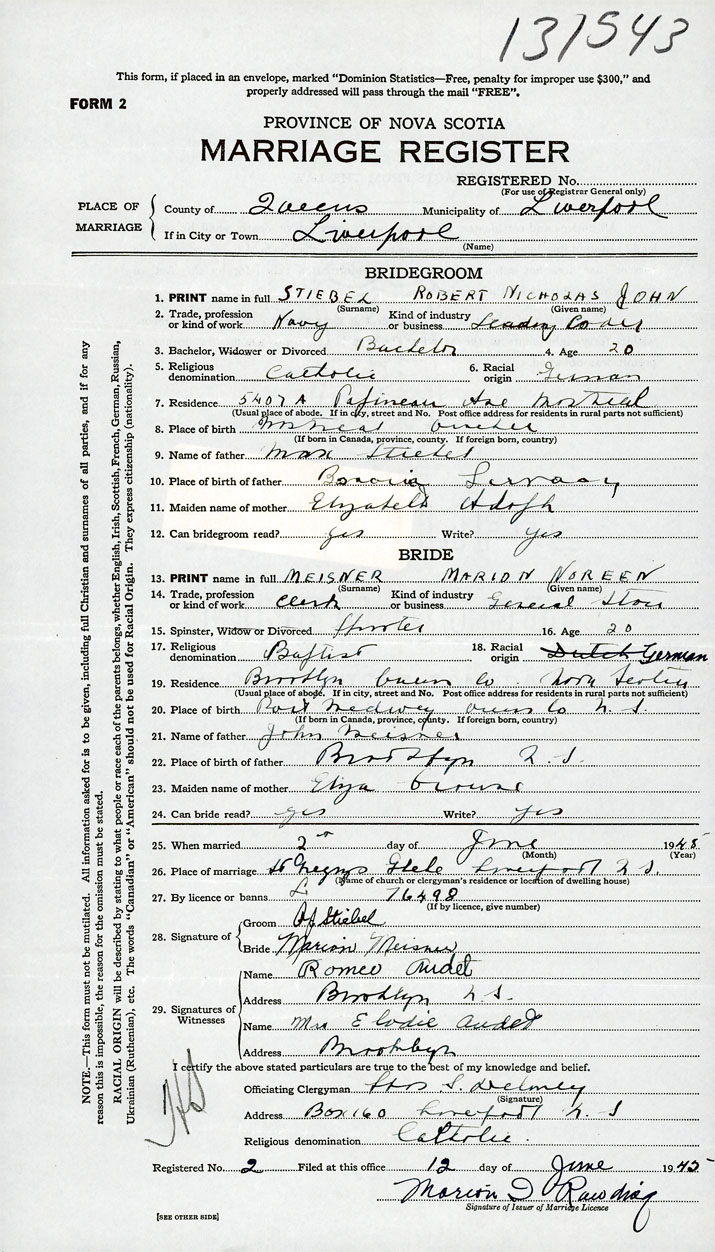 131543
This form, if placed in an envelope, marked “Dominion Statistics—Free, penalty for improper use $300,” and
properly addressed will pass through the mail “FREE”.
FORM 2
PROVINCE OF NOVA SCOTIA
MARRIAGE REGISTER
REGISTERED No.
(For use of Registrar General only)
PLACE OF MARRIAGE
County of Queens Municipality of Liverpool
If in City or Town Liverpool
(Name)
BRIDEGROOM
1. PRINT name in full STIEBEL ROBERT NICHOLAS JOHN
(Surname) (Given name)
2. Trade, profession or kind of work Navy Kind of industry or business Leading Coder
3. Bachelor, Widower or Divorced Bachelor 4. Age 20
5. Religious denomination Catholic 6. Racial origin German
7. Residence 5407A Papineau Ave Montreal
(Usual place of abode. If in city, street and No. Post office address for residents in rural parts not sufficient)
8. Place of birth Montreal Quebec
(If born in Canada, province, county. If foreign born, country)
9. Name of father Max Stiebel
10. Place of birth of father Germany
11. Maiden name of mother Elizabeth Adolph
12. Can bridegroom read? yes Write? yes
BRIDE
13. PRINT name in full MEISNER MARION NOREEN
(Surname) (Given name)
14. Trade, profession or kind of work Clerk Kind of industry or business General Store
15. Spinster, Widow or Divorced Spinster 16. Age 20
17. Religious denomination Baptist 18. Racial origin Dutch German
19. Residence Brooklyn Queens Co Nova Scotia
(Usual place of abode. If in city, street and No. Post office address for residents in rural parts not sufficient)
20. Place of birth Port Medway Queens Co N. S.
(If born in Canada, province, county. If foreign born, country)
21. Name of father John Meisner
22. Place of birth of father Brooklyn N. S.
23. Maiden name of mother Eliza
24. Can bride read? yes Write? yes
25. When married 2 day of June 1945
(Month) (Year)
26. Place of marriage St Gregorys Glebe Liverpool N. S.
(Name of church or clergyman's residence or location of dwelling house)
27. By licence or banns L 76498
(If by licence, give number)
28. Signature of
Groom Stiebel
Bride Marion Meisner
29. Signatures of Witnesses
Name Romeo Audet
Address Brooklyn N S.
Name Mrs Elodie Audet
Address Brooklyn
I certify the above stated particulars are true to the best of my knowledge and belief.
Officiating Clergyman
(Signature)
Address Box 160 Liverpool N. S
Religious denomination Catholic.
Registered No. 2 Filed at this office 12 day of June 1945
Marion D Rawding
Signature of Issuer of Marriage Licence
[SEE OTHER SIDE]
NOTE.—This form must not be mutilated. All information asked for is to be given, including full Christian and surnames of all parties, and if for any
reason this is impossible, the reason for the omission must be stated.
RACIAL ORIGIN will be described by stating to what people or race each of the parents belongs, whether English, Irish, Scottish, French, German, Russian,
Ukrainian (Ruthenian), etc. The words “Canadian” or “American” should not be used for Racial Origin. They express citizenship (nationality).